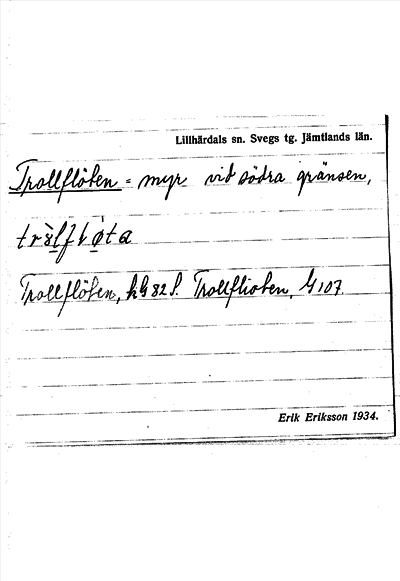 Lillhärdals sn. Svegs tg. Jämtlands län.
Trollflöten = myr vid södra gränsen,
Trollflöten, kG 82 S. Trollflioten, G 107
Erik Eriksson 1934.